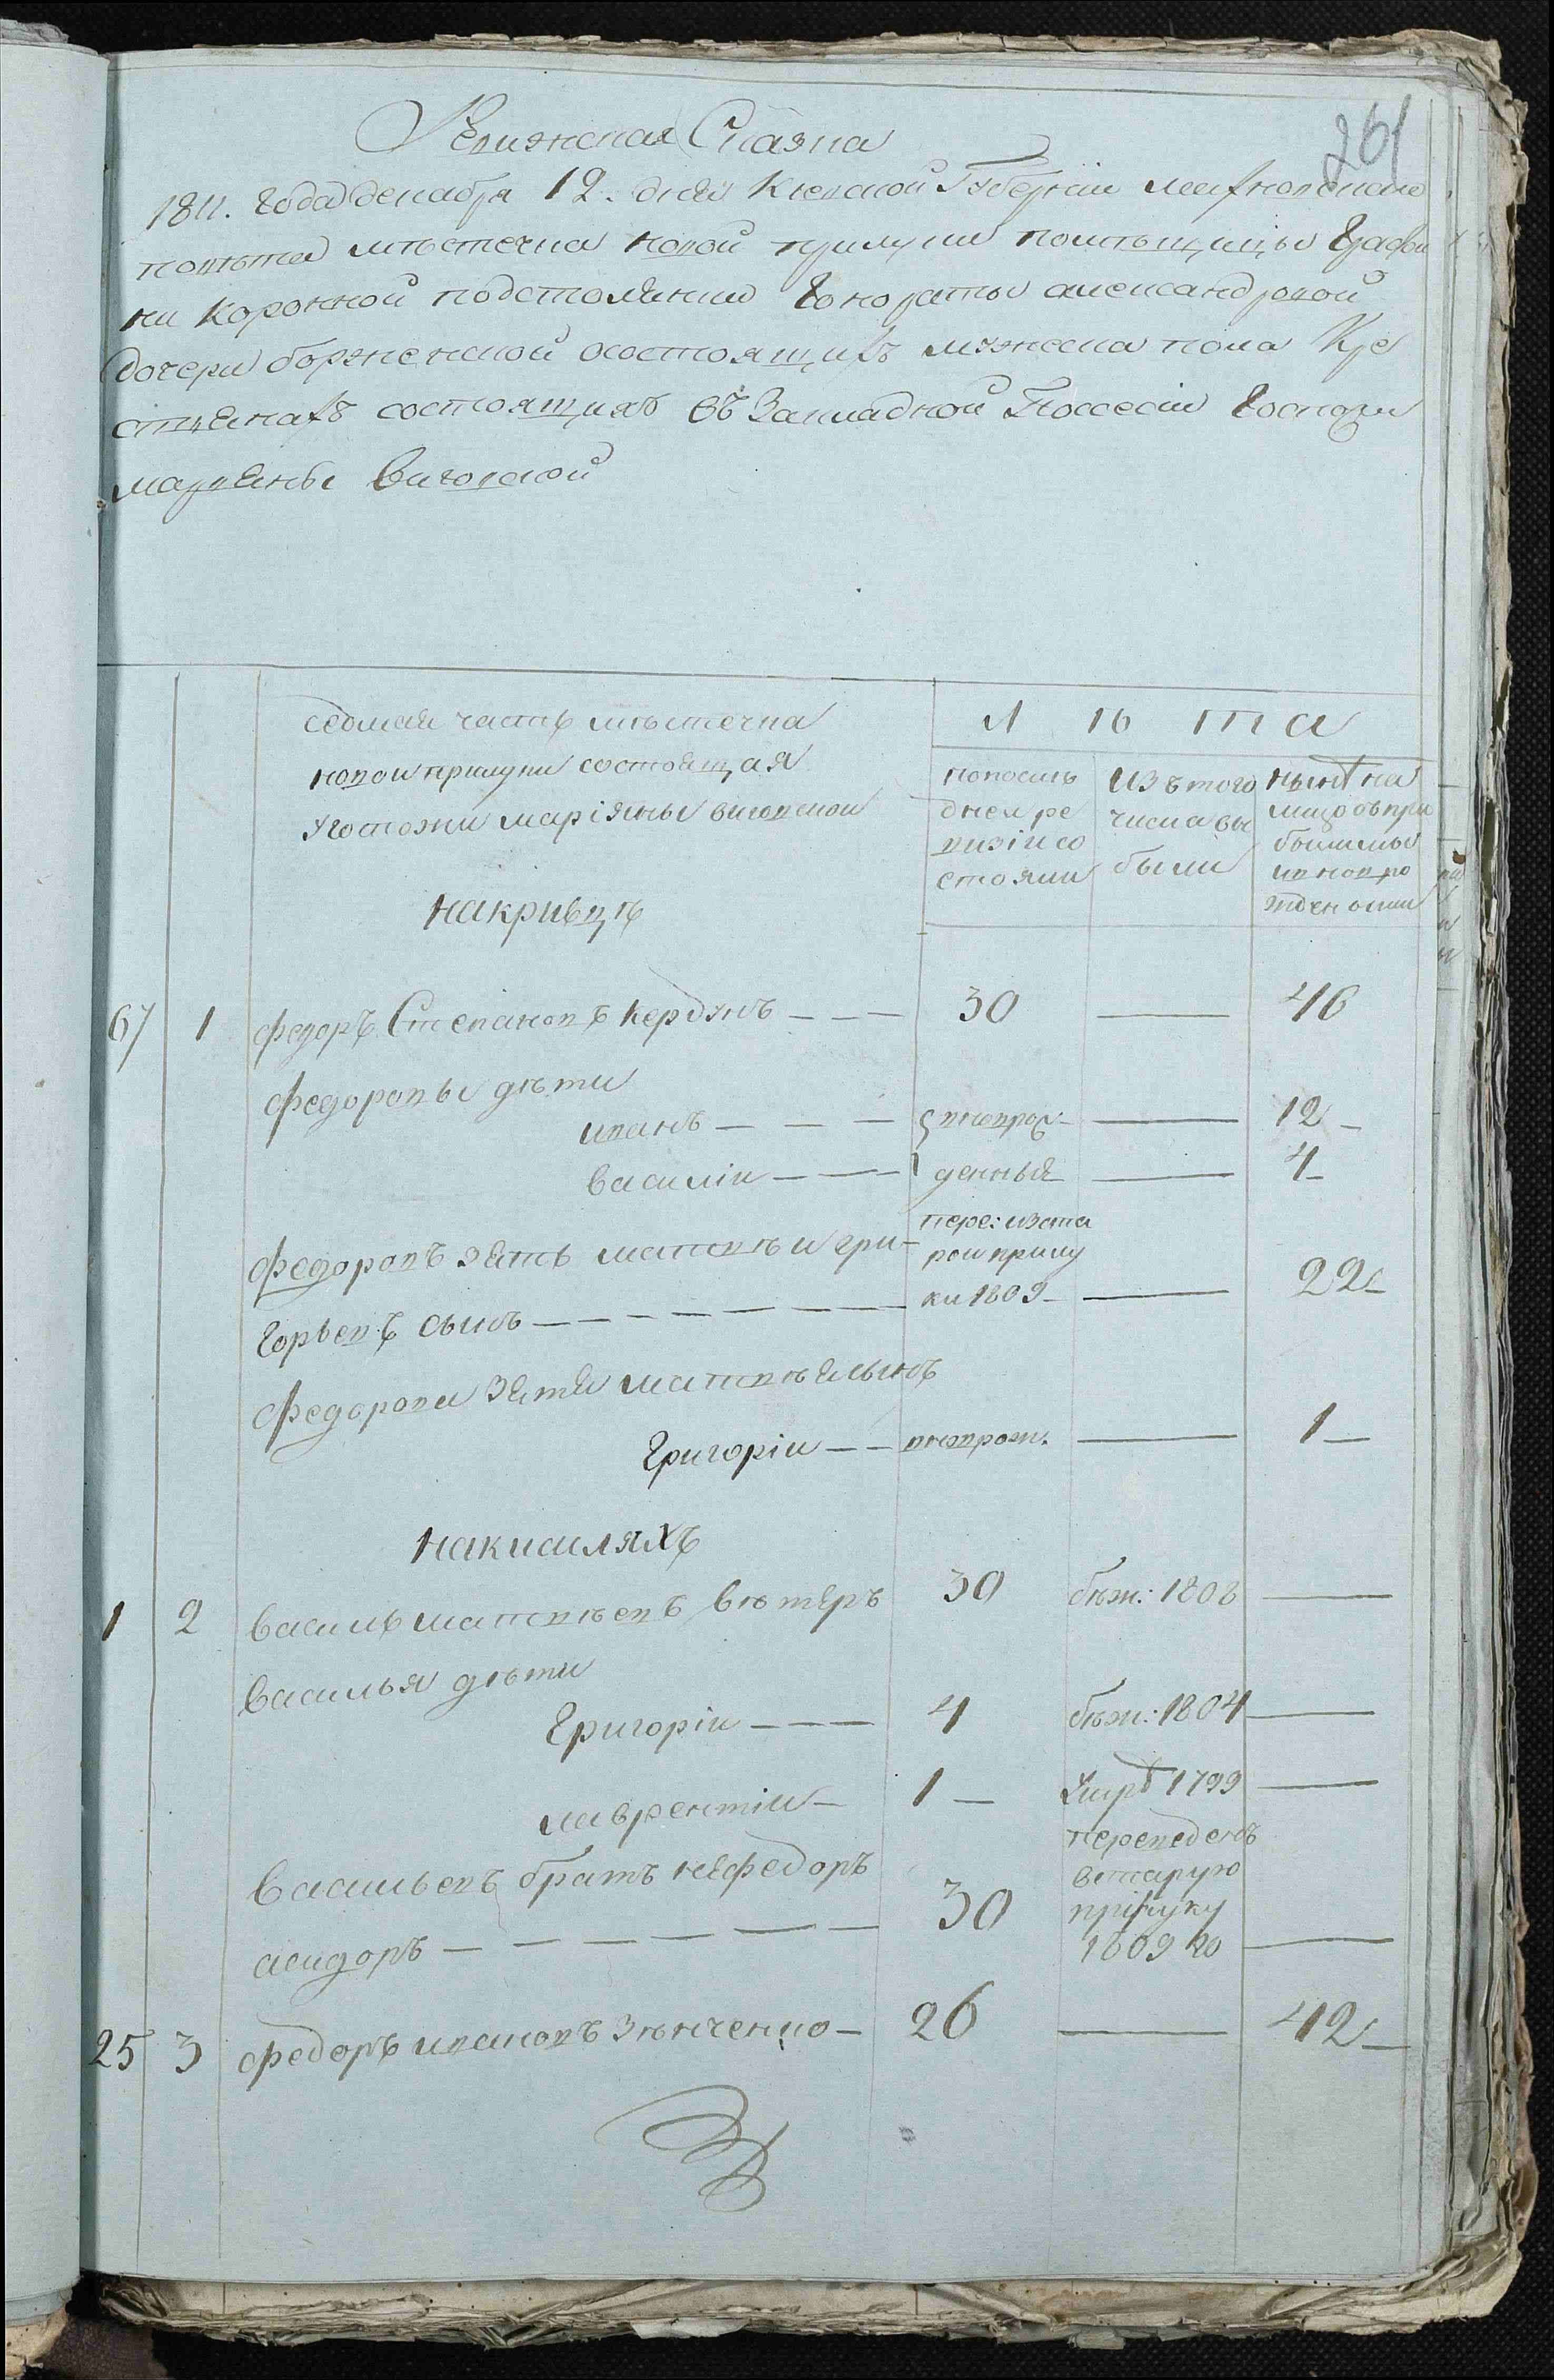 261
Ревизская Сказка
1811. Года декабря 12. дня Киевской Губерніи махновского
повѣта мѣстечка новой прилуки помѣщицы Графи
ни Коронной подстолянки Гонораты александровой
дочери борженской осостоящихъ мужеска пола Кре
стянахъ состоящихъ въ Закладной Поссесіи Госпожи
маріянны виговской
седмая часть мѣстечка
новои прилуки состоящая
Угоспожи маріянны виговскои
Л ѣ та
попослѣ
днеи ре
визіи со
стояли
Изътого
числа вы
были
нынѣ на
лицо съпри
былыми
ивновро
жденными
на кривцѣ
67 1 федоръ Степановъ Кердунъ - - - 30 — 46
федоровы дѣти
иванъ - - - вновро — 12 -
василіи - - - денныя — 4 -
федоровъ зять матвѣи гри-
горьевъ сынъ - - -
пере: изста
рои прилу
ки 1809 - — 22 -
федорова зятя матвѣя сынъ
Григоріи - - вноврож. — 1 -
на кисиляхъ
1 2 василь матвѣевъ вѣтеръ 30 бѣж: 1808 —
василья дѣти
Григоріи - - - 4 бѣж: 1804 —
лаврентіи - 1 - Умръ 1799 —
васильевъ братъ нефедоръ
асидоръ - - - 30
переведенъ
встарую
прилуку
1809 го —
25 3 федоръ ивановъ Зѣнченко - 26 — 42 -